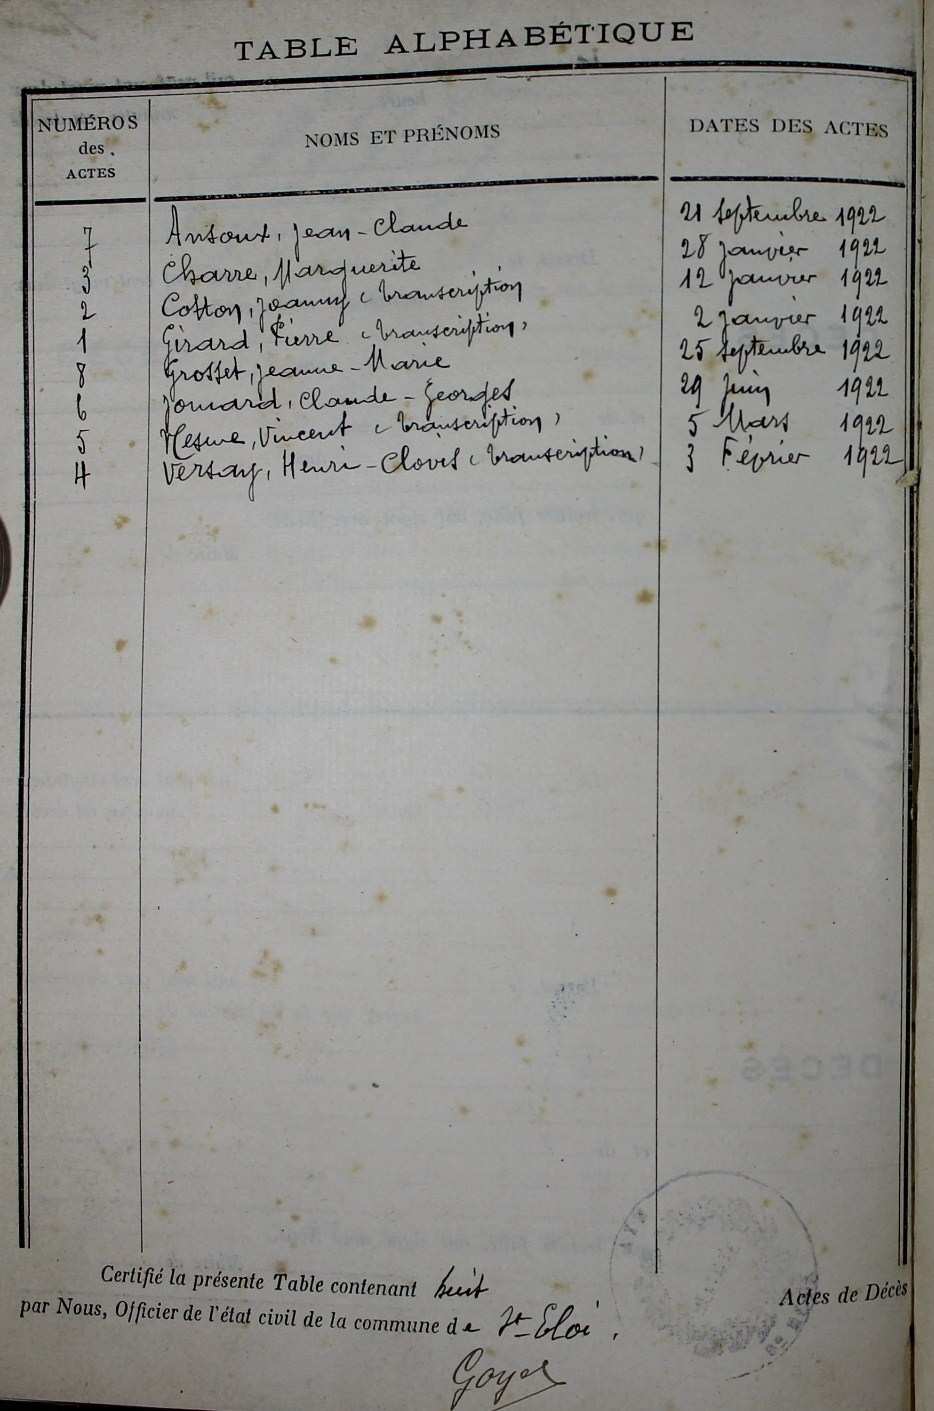 TABLE ALPHABÉTIQUE
NUMÉROS des ACTES
NOMS ET PRÉNOMS
DATES DES ACTES
7 Ansoux, Jean-Claude 21 Septembre 1922
3 Charre, Marguerite 28 Janvier 1922
2 Cotton, Joanny (transcription 12 Janvier 1922
1 Girard, Pierre (transcription) 2 Janvier 1922
8 Grosset, Jeanne-Marie 25 Septembre 1922
6 Jomard, Claude-Georges 29 Juin 1922
5 Mesme, Vincent (transcription) 5 Mars 1922
4 Versay, Henri-Clovis (transcription) 3 Février 1922
Certifié la présente Table contenant huit Actes de Décès
par Nous, Officier de l'état civil de la commune de St-Eloi.